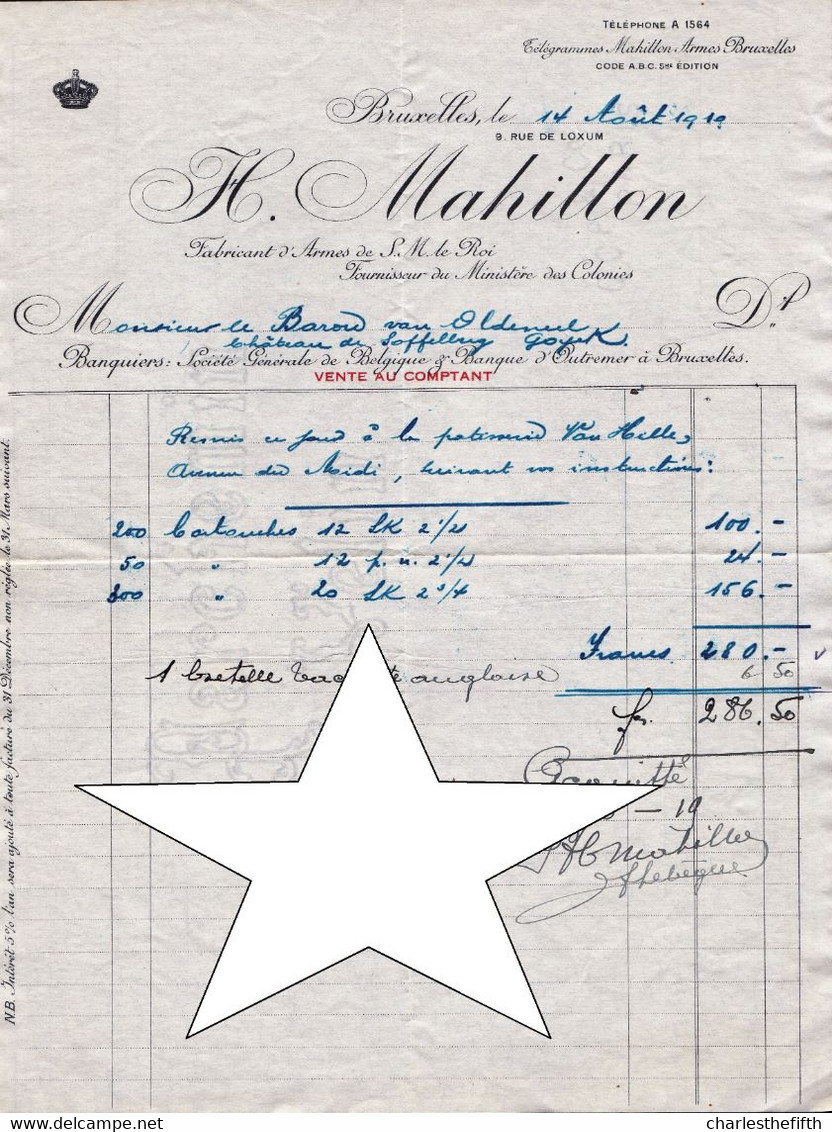 TÉLÉPHONE A 1564
Télégrammes Mahillon Armes Bruxelles
CODE A.B.C. 5me ÉDITION
Bruxelles, le 14 Août 1919
9. RUE DE LOXUM
H. Mahillon
Fabricant d'Armes de S.M. le Roi
Fournisseur du Ministère des Colonies
Monsieur le Baron van Oldeneel Dt
Château de
Banquiers: Société Générale de Belgique & Banque d'Outremer à Bruxelles.
VENTE AU COMPTANT
Remis ce jour à la patisserie Van Helle,
Avenue du Midi, suivant vos instructions:
200 Cartouches 12 SK 2 1/2 100.-
50 " 12 p. n. 2 1/2 24.-
300 " 20 SK 2 3/4 156.-
Francs 280.-
1 bretelle anglaise 6 50
fr. 286.50
Acquitté
- 19
H Mahillon
N.B. Intérêt 5% l'an sera ajouté à toute facture du 31 Décembre non réglée le 31 Mars suivant.
charlesthefifth